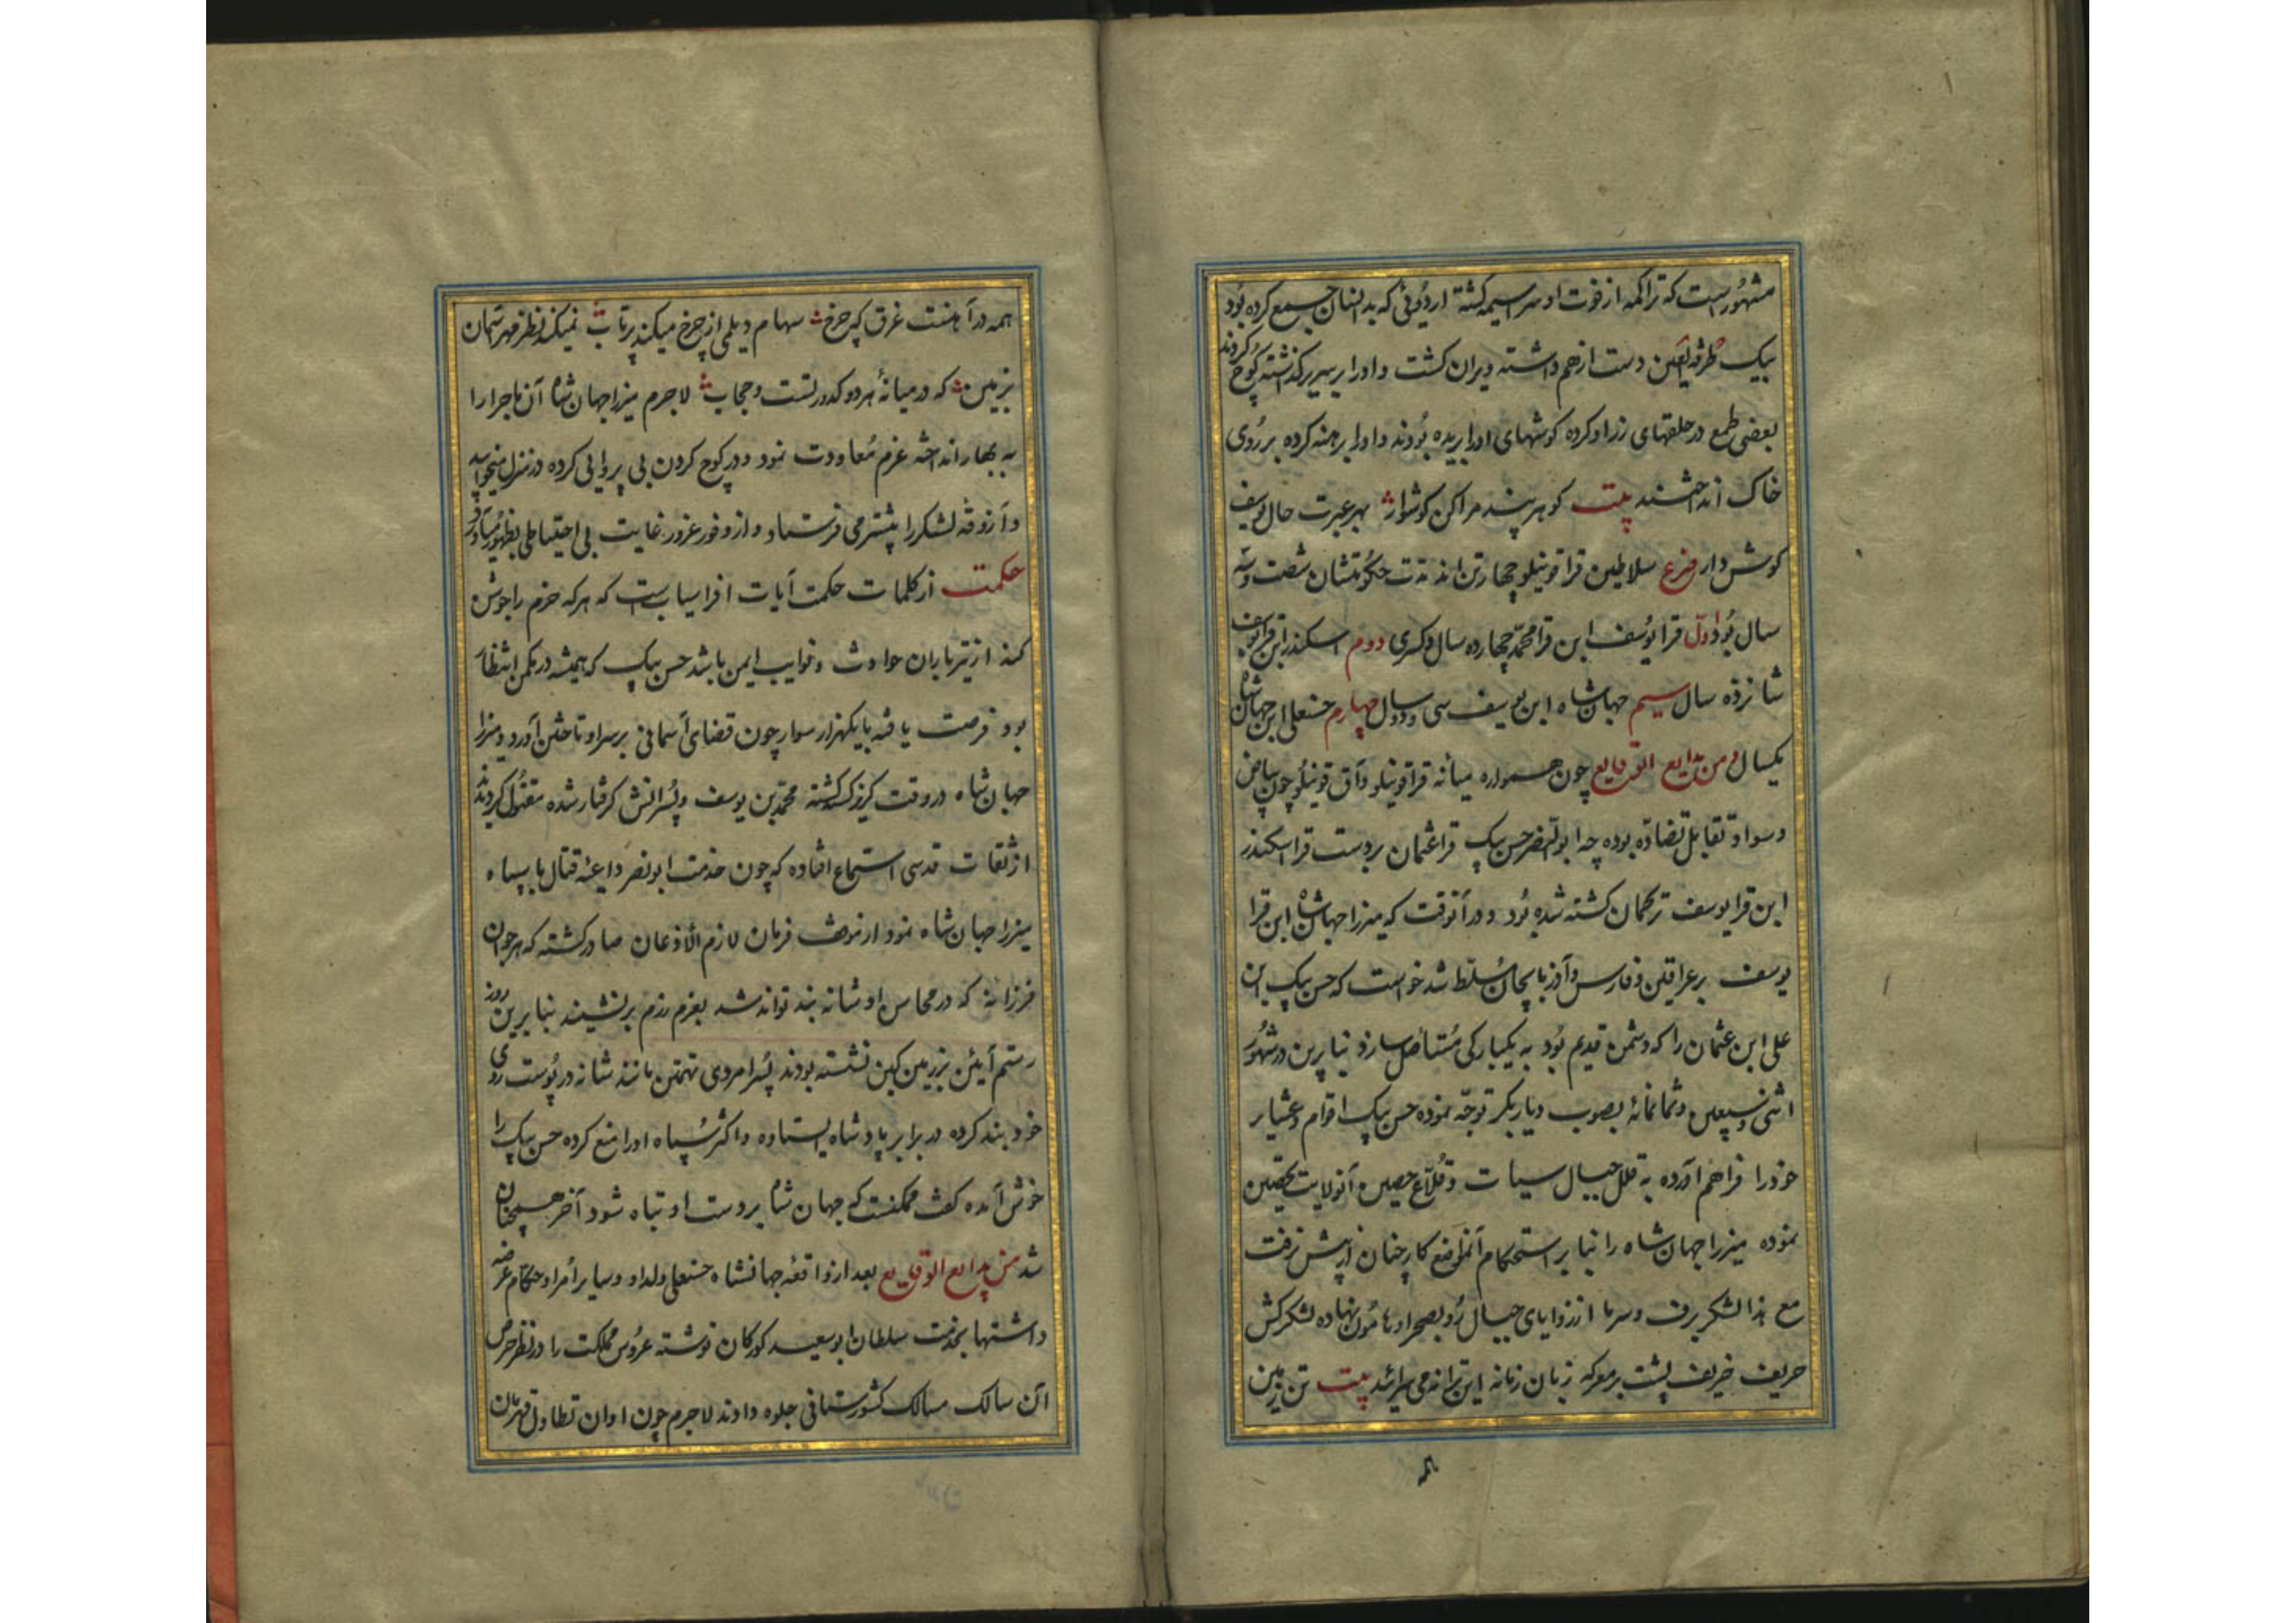 مشهورست که تراکمه از فوت او سراسیمه گشته اردوئی که بدانسان جمع کرده بود
بیک طرفة العین دست از هم داشته ویران گشت و او را بر سریر گذاشته کوچ کردند
بعضی طمع در حلقهای زر او کرده گوشهای او را بریده بودند و او را برهنه کرده بر روی
خاک انداختند بیت گوهر پند مرا کن گوشوار بهر عبرت حال یوسف
گوش دار فرع سلاطین قراقوینلو چهار تن اند مدت حکومتشان شصت و سه
سال بود اول قرا یوسف ابن قرا محمد چهارده سال و کسری دوم اسکندر ابن قرا یوسف
شانزده سال سیم جهان شاه ابن یوسف سی و دو سال چهارم حسنعلی ابن جهان شاه
یکسال و من بدایع الوقایع چون همواره میانه قراقوینلو و آق قوینلو چون بیاض
و سواد تقابل تضاده بوده چه ابو النصر حسن بیک قرا عثمان بر دست قرا اسکندر
ابن قرا یوسف ترکمان کشته شده بود و در آنوقت که میرزا جهان شاه ابن قرا
یوسف بر عراقین و فارس و آذربایجان مسلط شد خواست که حسن بیک ابن
علی ابن عثمان را که دشمن قدیم بود به یکبارگی مستأصل سازد بنابرین در شهور
اثنی و سبعین و ثمانمائه بصوب دیاربکر توجه نموده حسن بیک اقوام و عشایر
خود را فراهم آورده به قلل جبال و قلاع حصین آنولایت تحصین
نموده میرزا جهان شاه را بنابر استحکام آنمواضع کار چنان از پیش نرفت
مع هذا لشکر برف و سرما از زوایای جبال رو بصحرا و هامون نهاده لشکر کش
حریف خریف پشت بر معرکه زبان زمانه این ترانه می سرائید بیت تن زمین
همه
همه در آهنست غرق که چرخ سهام دیلمی از چرخ میکند پرتاب نمیکند نظر مهر آسمان
بزمین که در میانۀ هر دو کدورتست و حجاب لاجرم میرزا جهان شاه آن ماجرا را
به بهار انداخته عزم معاودت نمود و در کوچ کردن بی پروایی کرده در منزل میخوابید
و آزوقه لشکر را پیشتر می فرستاد و از وفور غرور غایت بی احتیاطی بظهور میآورد
حکمت از کلمات حکمت آیات افراسیابست که هر که حزم را جوشن
کند از تیرباران حوادث و نوایب ایمن باشد حسن بیک که همیشه در مکمن انتظار
بود فرصت یافته با یکهزار سوار چون قضای آسمانی بر سر او تاختن آورد و میرزا
جهان شاه در وقت گریز کشته محمد بن یوسف و پسرانش گرفتار شده مقتول گردیدند
از ثقات قدسی استماع افتاده که چون خدمت ابو نصر داعیه قتال با سپاه
میرزا جهان شاه نمود از موقف فرمان لازم الاذعان صادر گشته که هر جوان
فرزانه که در محاسن او شانه بند تواند شد بعزم رزم برنشیند بنابرین روز
رستم آیین بر زمین کین نشسته بودند پسر امردی تهمتن مانند شانه در پوست روی
خود بند کرده در برابر پادشاه ایستاده و اکثر سپاه او را منع کرده حسن بیک را
خوش آمده گفت ممکنست که جهان شاه بر دست او تباه شود آخر همچنان
شد من بدایع الوقایع بعد از واقعه جهانشاه حسنعلی ولد او و سایر امرا و حکام عرضه
داشتها بخدمت سلطان ابو سعید کورکان نوشته عروس مملکت را در نظر حرص
آن سالک مسالک کشورستانی جلوه دادند لاجرم چون اوان تطاول قهرمان